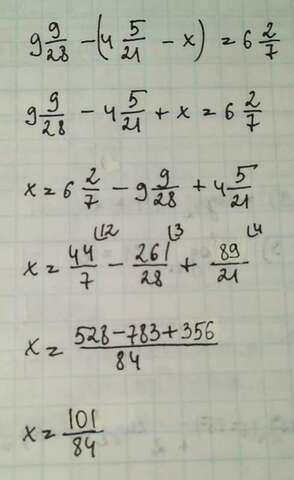 9 9/28 - (4 5/21 - x) = 6 2/7
9 9/28 - 4 5/21 + x = 6 2/7
x = 6 2/7 - 9 9/28 + 4 5/21
x = 44/7 ⌊12 - 261/28 ⌊3 + 89/21 ⌊4
x = (528-783+356)/84
x = 101/84